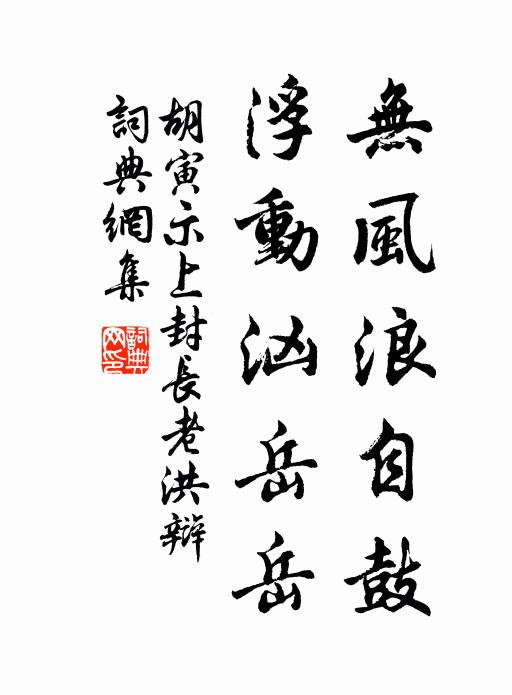 無風浪自鼓
浮動汹岳岳
胡寅示上封長老洪辯
詞典網集
詞典網印